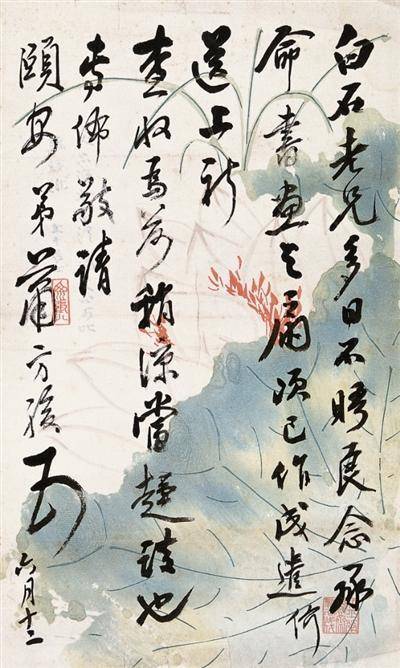 白石老兄多日不晤良念承
命書畫之扇頃已作成遣价
送上祈
查收為荷稍涼當趨談也
專佈敬請
頤安弟蕭方駿頓
六月十三